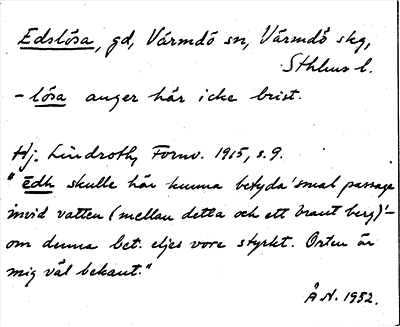 Edslösa, gd, Värmdö sn, Värmdö skg,
Sthlms l.
- lösa anger här icke brist.
Hj. Lindroth, Fornv. 1915, s. 9.
"ēdh skulle här kunna betyda 'smal passage
invid vatten (mellan detta och ett brant berg)' –
om denna bet. eljes vore styrkt. Orten är
mig väl bekant."
Å N. 1932.